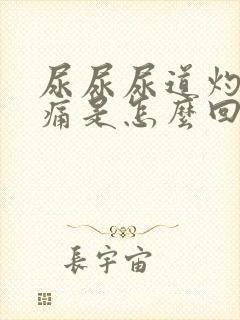 尿尿尿道灼
痛是怎麼回
長宇宙